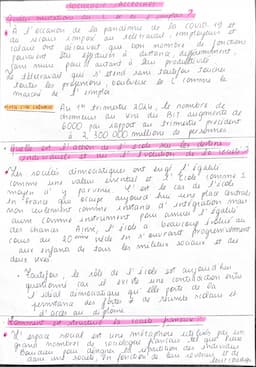 SOCIOLOGIE ACCROCHES
Quelles mutations du travail et de l'emploi ?
• A l'occasion de la pandémie de la COVID-19 et
du recours imposé au télétravail, employeurs et
salariés ont découvert que bon nombre de fonctions
pouvaient être effectuées à distance,
sans nuire pour autant à leur productivité.
Le télétravail qui s'étend sans toutefois toucher
toutes les professions, bouleverse
de l'emploi.
Au 1er trimestre 2024, le nombre de
chômeurs au sens du BIT augmente de
6000 par rapport au trimestre précédent
à 2 300 000 millions de personnes
• Quelle est l'action de l'école sur les destins
individuels et sur l'évolution de la société ?
• Les sociétés démocratiques ont érigé l'égalité
comme une valeur essentielle et l'Ecole comme 1
moyen d'y parvenir. C'est le cas de l'école
en France qui occupe aujourd'hui une place centrale
non seulement comme instance d'intégration mais
aussi comme instrument pour assurer l'égalité
des chances. Ainsi, l'école a beaucoup évolué au
cours du 20ème siècle en s'ouvrant progressivement
aux enfants de tous les milieux sociaux et des
deux sexes.
• Toutefois, le rôle de l'école est aujourd'hui
questionné car il existe une contradiction entre
l'idéal démocratique qu'elle porte et la
permanence des de réussite scolaire et
d'accès au diplôme.
Comment est structurée la société française ?
• L'espace social est une métaphore utilisée par un
grand nombre de sociologues français tel que Pierre
Bourdieu pour désigner la répartition des individus
dans une société en fonction de leur revenu et de